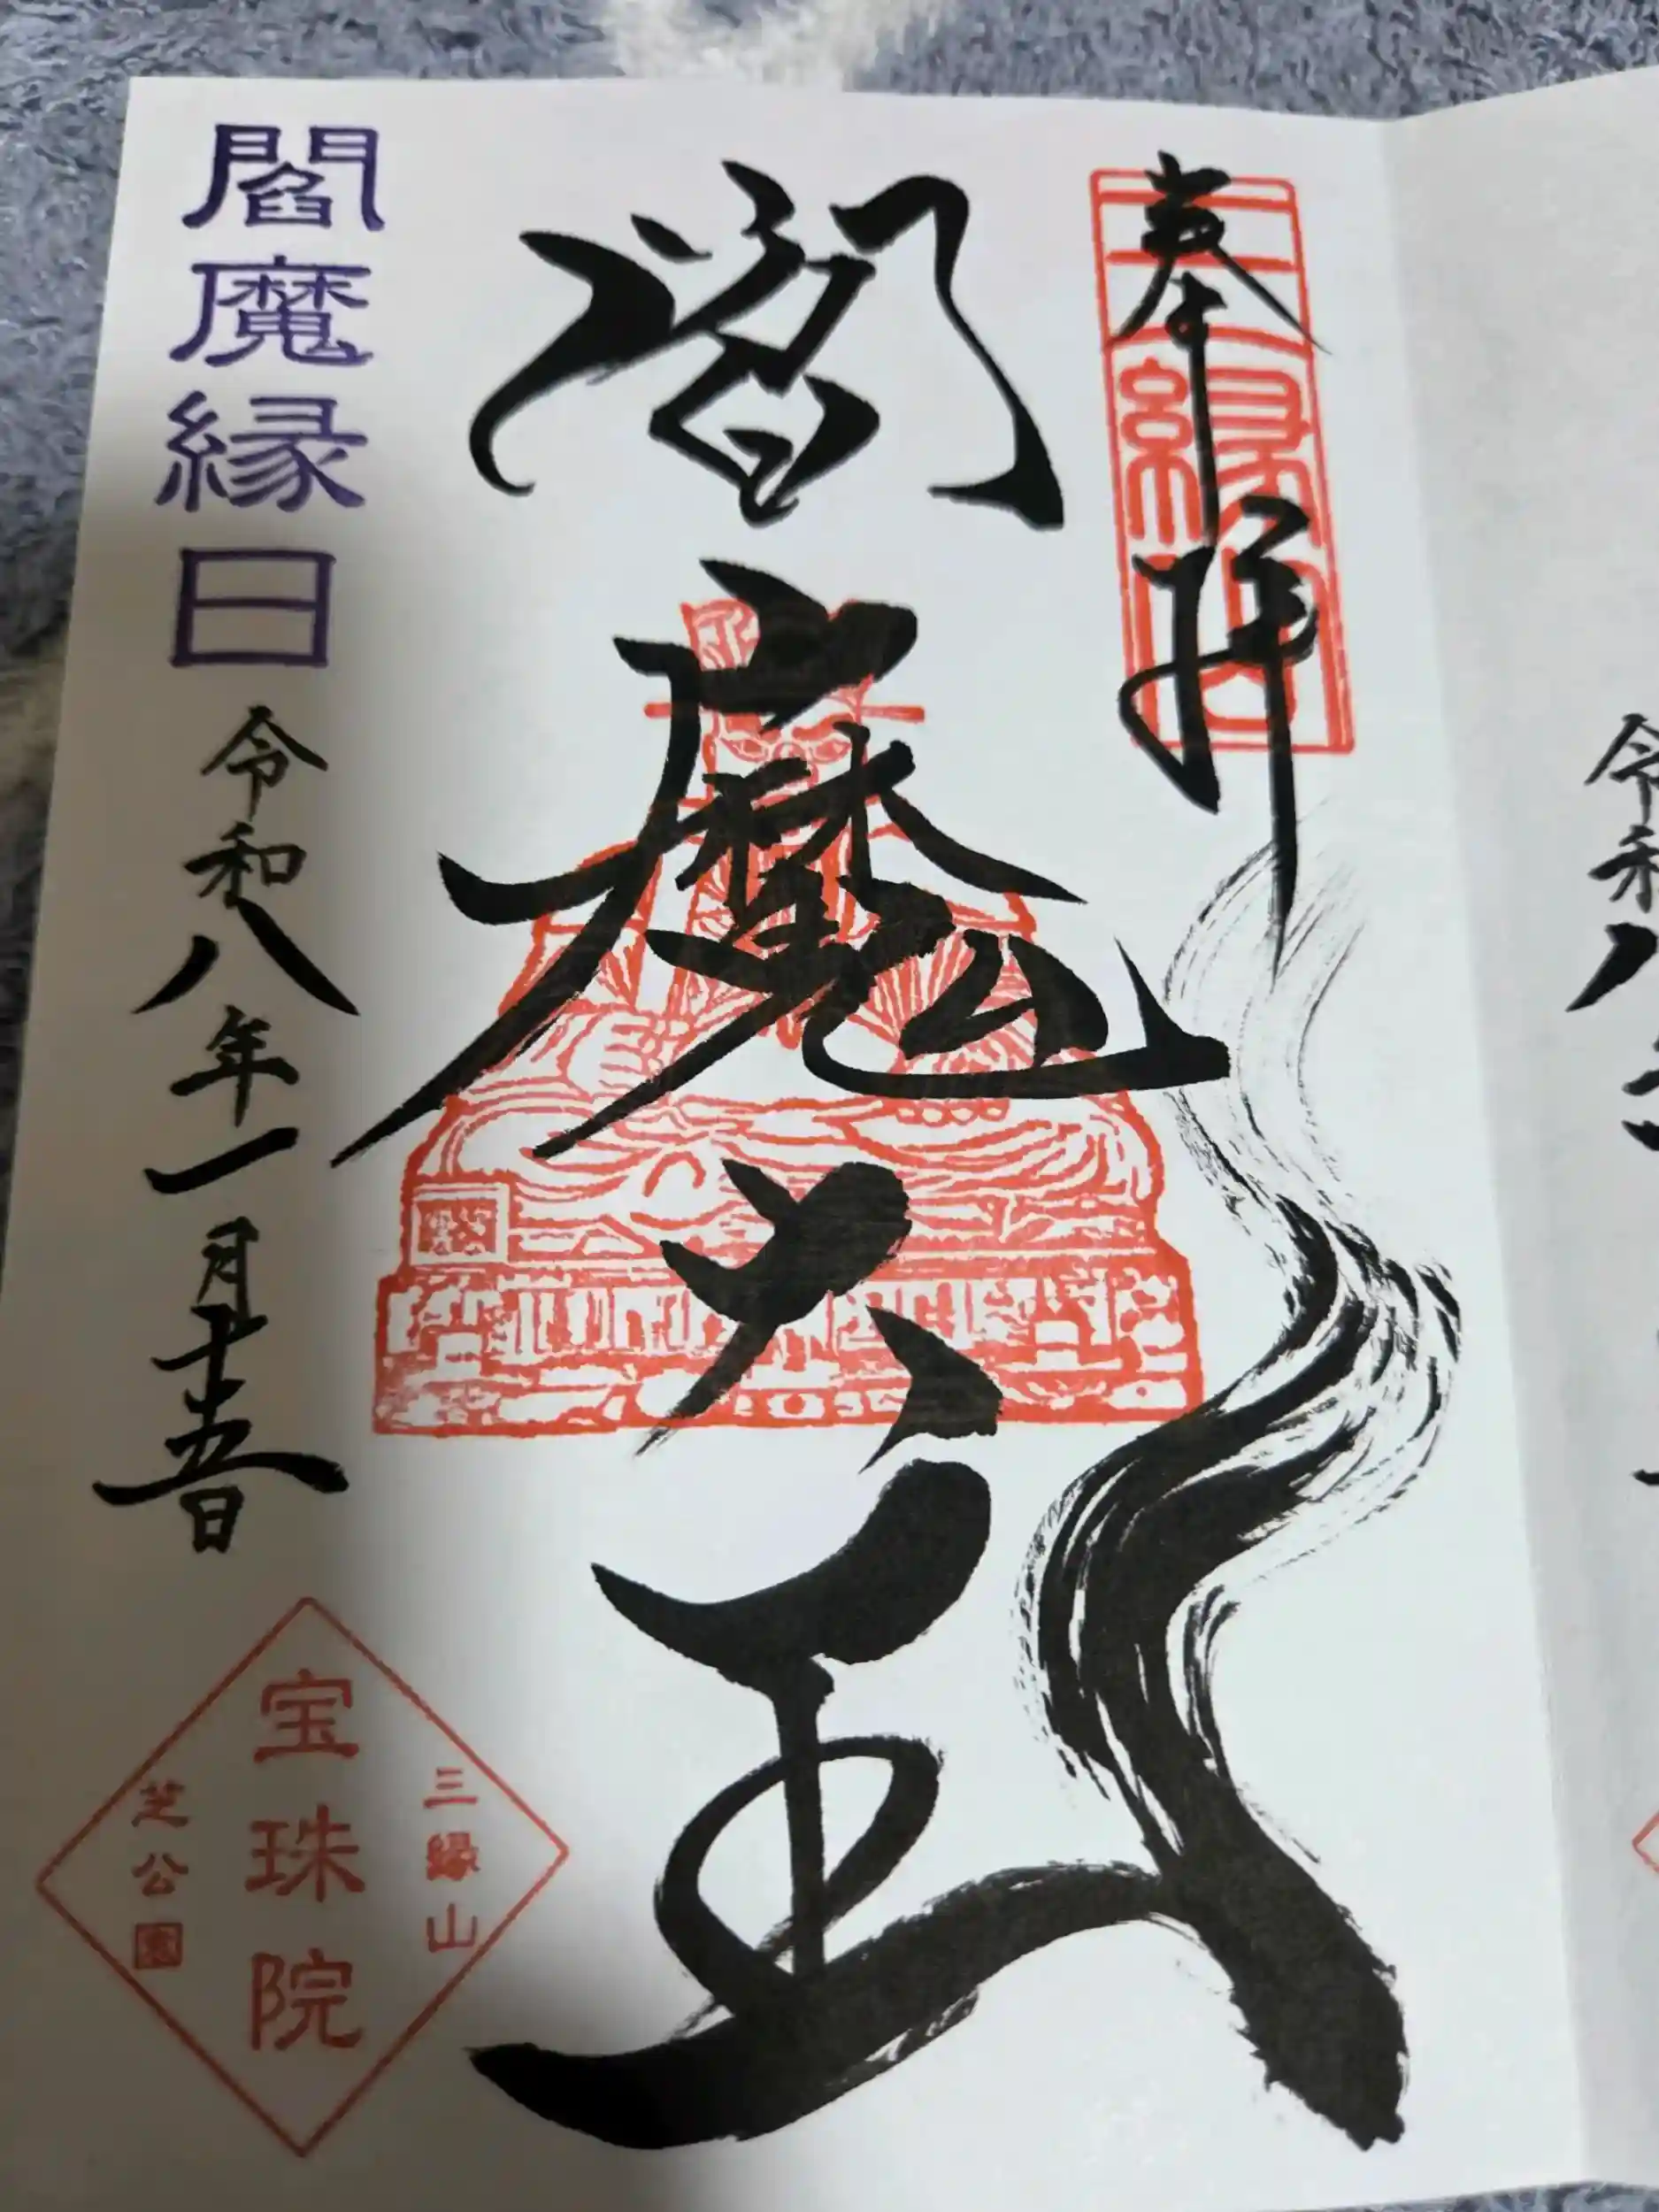 令和八
奉拝
三縁山
閻魔大王
閻魔縁日
令和八年一月十五日
三縁山
宝珠院
芝公園